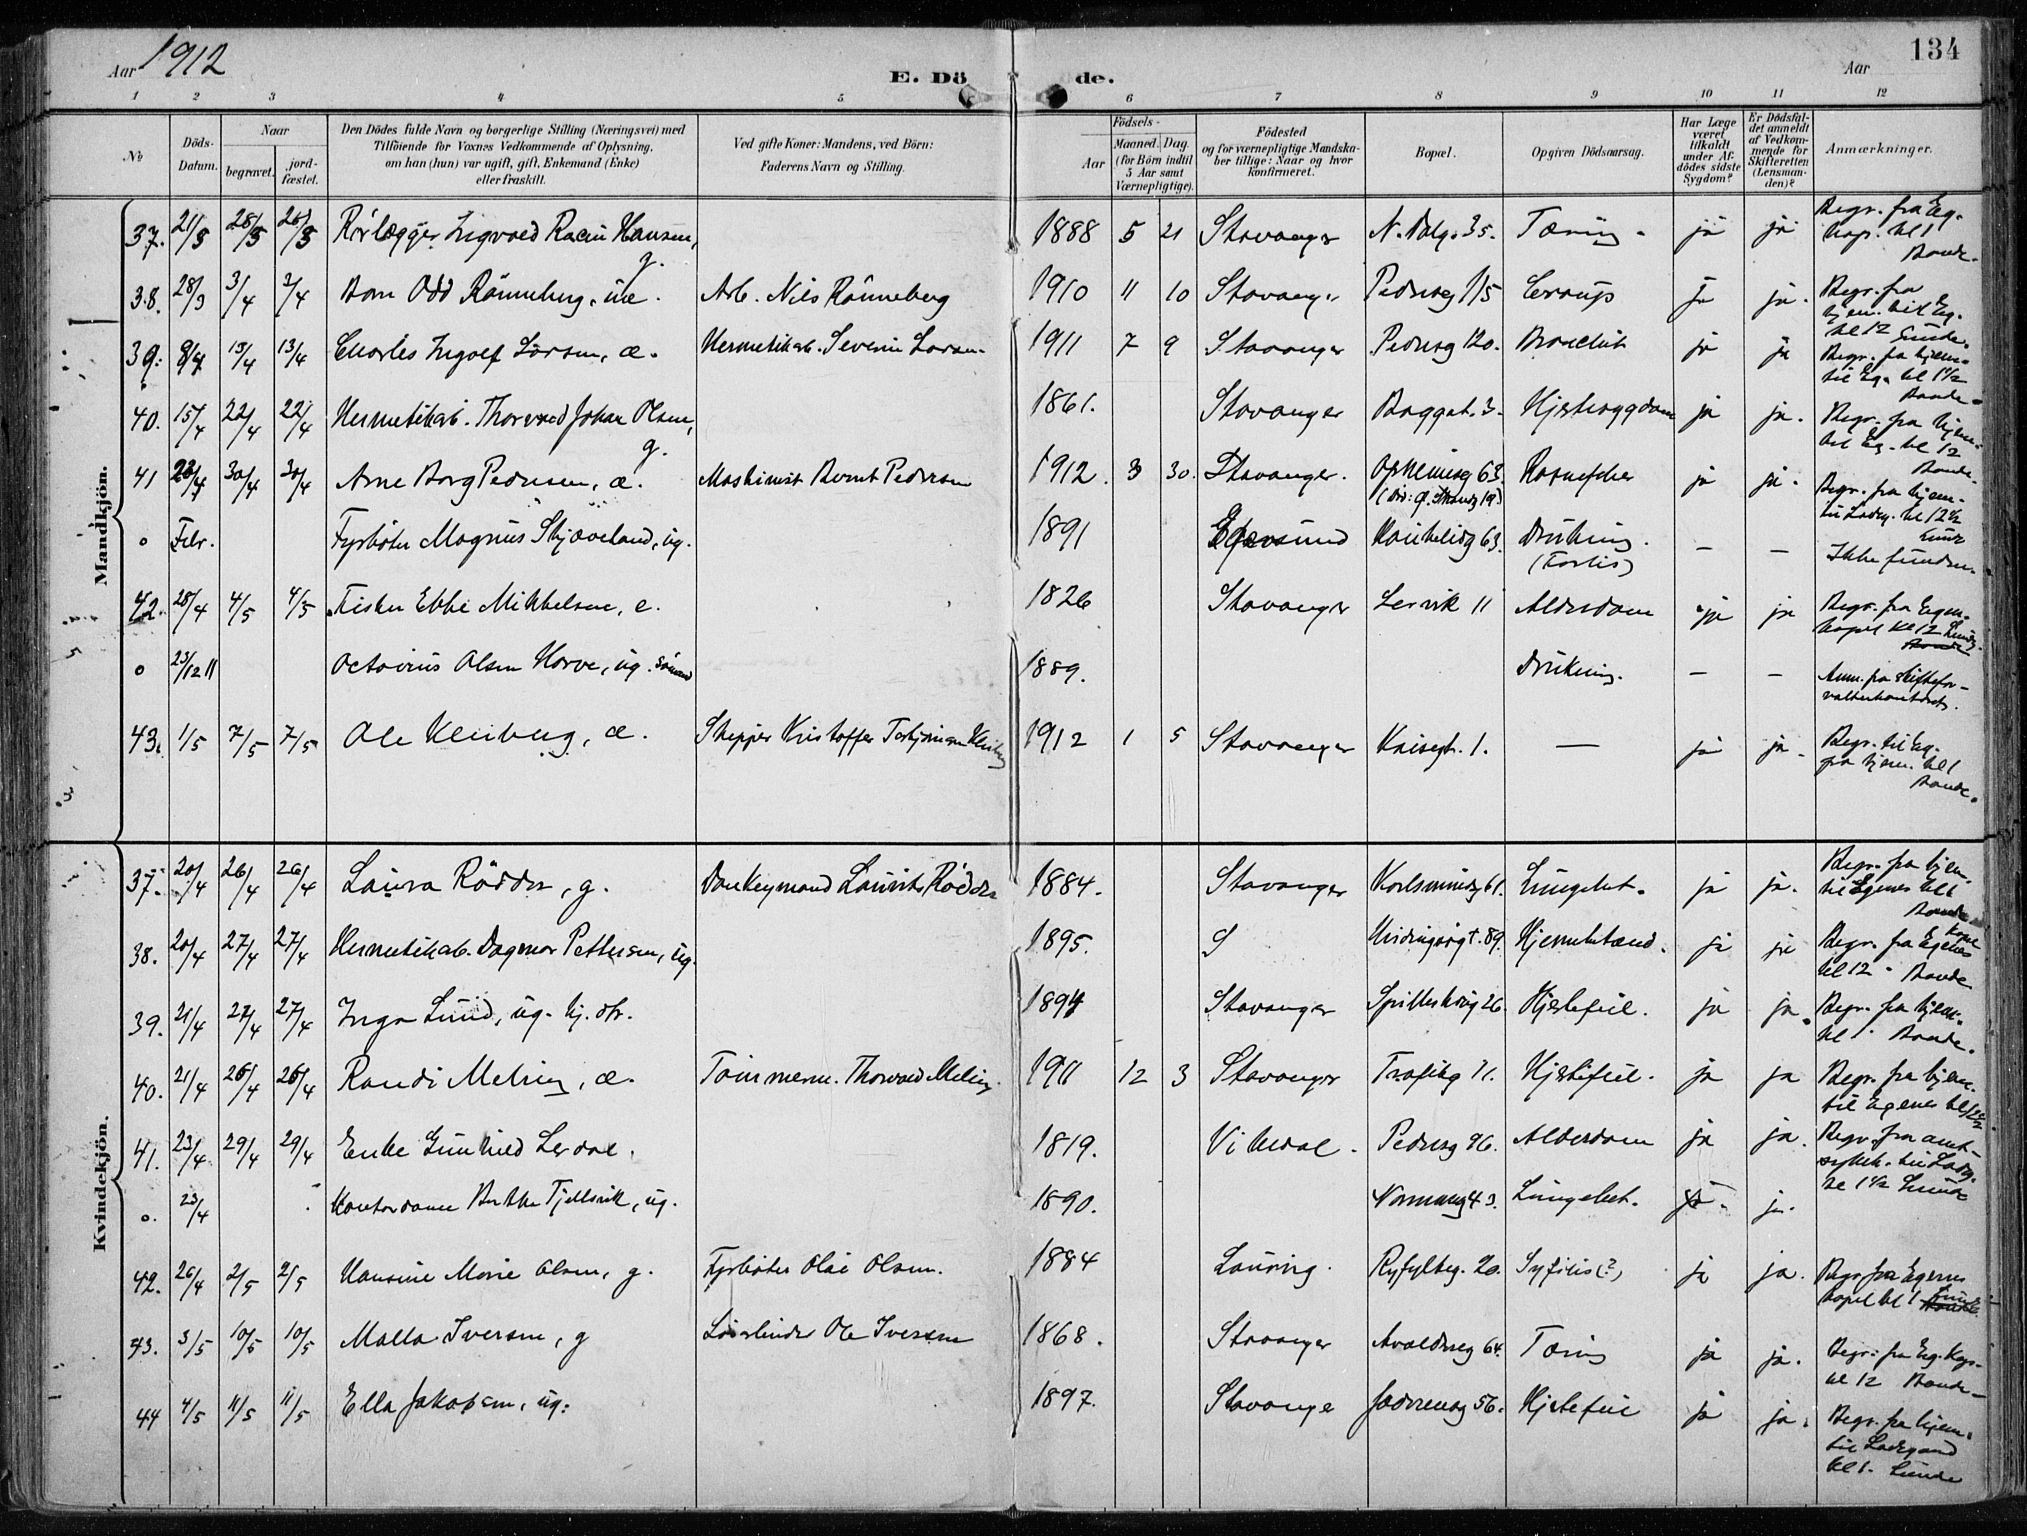 Aar 1912
E. Dö de.
Aar
134
1 2 3 4 5 6 7 8 9 10 11 12
No
Döds-Datum.
Naar
begravet. jord-fæstet.
Den Dödes fulde Navn og borgerlige Stilling (Næringsvei) med
Tilföiende for Voxnes Vedkommende af Oplysning,
om han (hun) var ugift, gift, Enkemand (Enke)
eller fraskilt.
Ved gifte Koner: Mandens, ved Börn:
Faderens Navn og Stilling.
Födsels-
Aar
Maaned. Dag.
(for Börn indtil
5 Aar samt
Værnepligtige).
Födested
og for værnepligtige Mandska-
ber tillige: Naar og hvor
konfirmeret.
Bopæl.
Opgiven Dödsaarsag.
Har Læge
været
tilkaldt
under Af-
dödes sidste
Sygdom?
Er Dödsfal-
det anmeldt
af Vedkom-
mende for
Skifteretten
(Lensman-
den)?
Anmærkninger.
Mandkjön.
37. 21/3 28/3 26/3 Rörlægger Ingvald Hansen, g. 1888 5 21 Stavanger N. Dalg. 35. Tæring ja ja Begr. fra Eg. kap. kl 1 Bonde.
38. 28/3 3/4 2/4 Barn Odd Rönneberg, uæ. Arb. Nils Rönneberg 1910 11 10 Stavanger Pedersg 115 Croup ja ja. Begr. fra hjem. til Eg. kl 12 Lunde.
39. 8/4 13/4 13/4 Charles Ingolf Larsen, æ. Hermetikarb. Severin Larsen 1911 7 9 Stavanger Pedersg 120. Bronchit ja ja Begr. fra hjem. til Eg. kl 1 1/2 Bonde
40. 15/4 22/4 22/4 Hermetikarb. Thorvald Johan Olsen, g. 1861. Stavanger Baggat. 3. Hjertesygdom ja ja. Begr. fra hjem. til Eg. kl 12 Bonde.
41 23/4 30/4 30/4 Arne Borg Pedersen, æ. Maskinist Bernt Pedersen 1912. 3 30. Stavanger. Opheimsg 63. ja ja. Begr. fra hjem. til Ladeg. kl 12 1/2 Lunde
o Febr. Fyrböter Magnus Skjæveland, ug. 1891 Egersund 63. Drukning. (Forlis) — — Ikke funden.
42. 28/4 4/5 4/5 Fisker Ebbe Mikkelsen, e. 1826 Stavanger Lervik 11 Alderdom ja ja Begr. fra Egen. kapel kl 12 Lunde. Bonde
o 23/12 11 Octavius Olsen Horve, ug. sömand 1889. Drukning. — — Anm. fra skiftefor-valterkontoret.
43. 1/5 7/5 7/5 Ole Kleiberg, æ. Skipper Kristoffer 1912 1 5 Stavanger 1. — ja ja. Begr. til Eg. fra hjem. kl 1 Bonde.
Kvindekjön.
37. 20/4 26/4 26/4 Laura Rödder, g. Donkeymand Laurits Rödder 1884. Stavanger Karlsminieg 61. Lungebet. ja ja. Begr. fra hjem. til Egenes kl 1 Bonde
38. 20/4 27/4 27/4 Hermetikarb. Dagmar Pettersen, ug. 1895. S 89. Hjernebetænd. ja ja Begr. fra Egenes Kapel kl 12 Bonde
39. 21/4 27/4 27/4 Inga Lund, ug. hj. dtr. 1894 Stavanger 26. Hjertefeil. ja ja. Begr. fra hjem. kl 1 Bonde.
40. 21/4 26/4 26/4 Randi Meling, æ. Tömmerm. Thorvald Meling. 1911 12 3 Stavanger 11. Hjertefeil. ja ja Begr. fra hjem. til Egenes kl
41. 23/4 29/4 29/4 Enke Gunhild Lerdal. 1819. Vikedal. Pedersg 96. Alderdom ja ja. Begr. fra amt-sykeh. til Ladeg. kl 1 1/2 Lunde
o. 23/4 Kontordame Berthe Fjellvik, ug. 1890. Normannsg 43. Lungebet. ja. ja.
42. 26/4 2/5 2/5 Hansine Marie Olsen, g. Fyrböter Olai Olsen. 1884 Ryfylkeg. 20. Syfilis (?) ja ja. Begr. fra Egenes kapel kl 1 Bonde Lunde
43. 3/5 10/5 10/5 Malla Iversen, g Ole Iversen 1868. Stavanger Avaldsneg 64. Tæring ja ja. Begr. fra Eg. Kap. kl 12 Bonde
44 4/5 11/5 11/5 Ella Jakobsen, ug. 1897. Stavange Jædereng 56. Hjertefeil ja ja. Begr. fra hjem. til Ladegaard kl 1. Lunde